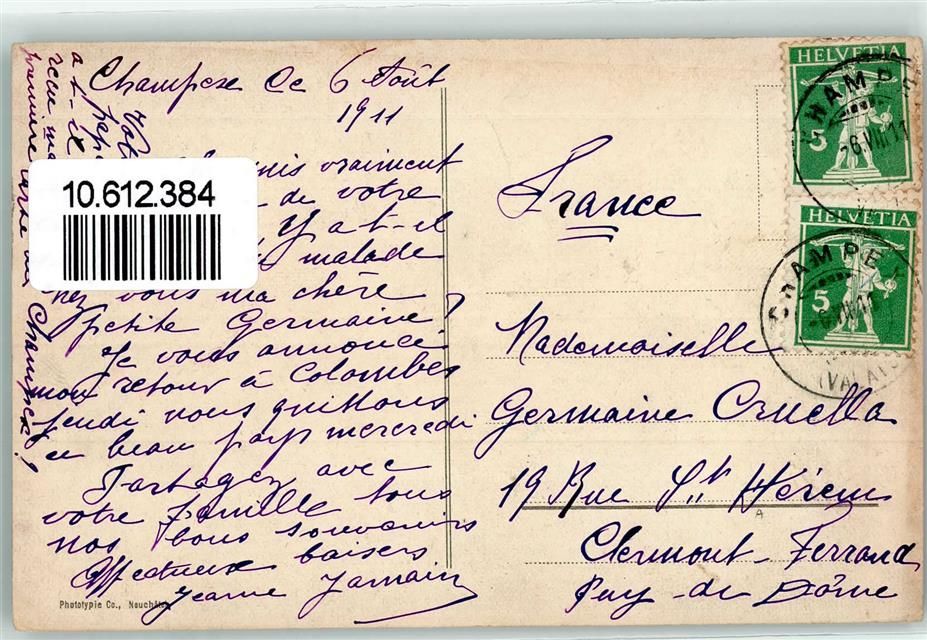 Champex le 6 Août
1911
vraiment
de votre
Y a t-il
malade
chez vous ma chère
petite Germaine?
Je vous annonce
mon retour à Colombes
jeudi nous quittons
ce beau pays mercredi
Partagez avec
votre famille tous
nos bons souvenirs
Affectueux baisers
Jeanne Jamain
Votre
papa
a-t-il
reçu ma
première carte de Champex?
10.612.384
Phototypie Co., Neuchâtel
France
Mademoiselle
Germaine Cruella
19 Rue St Hérem
Clermont-Ferrand
Puy-de Dôme
HELVETIA
5
CHAMPEX
-6.VIII.11
HELVETIA
5
CHAMPEX
-6.VIII.11
(VALAIS)